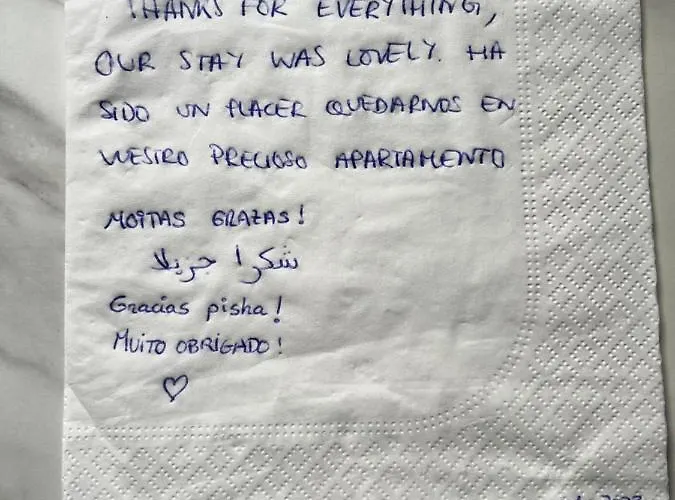 THANKS FOR EVERYTHING,
OUR STAY WAS LOVELY. HA
SIDO UN PLACER QUEDARNOS EN
VUESTRO PRECIOSO APARTAMENTO
MOITAS GRAZAS!
شكرا جزيلا
Gracias pisha!
MUITO OBRIGADO!